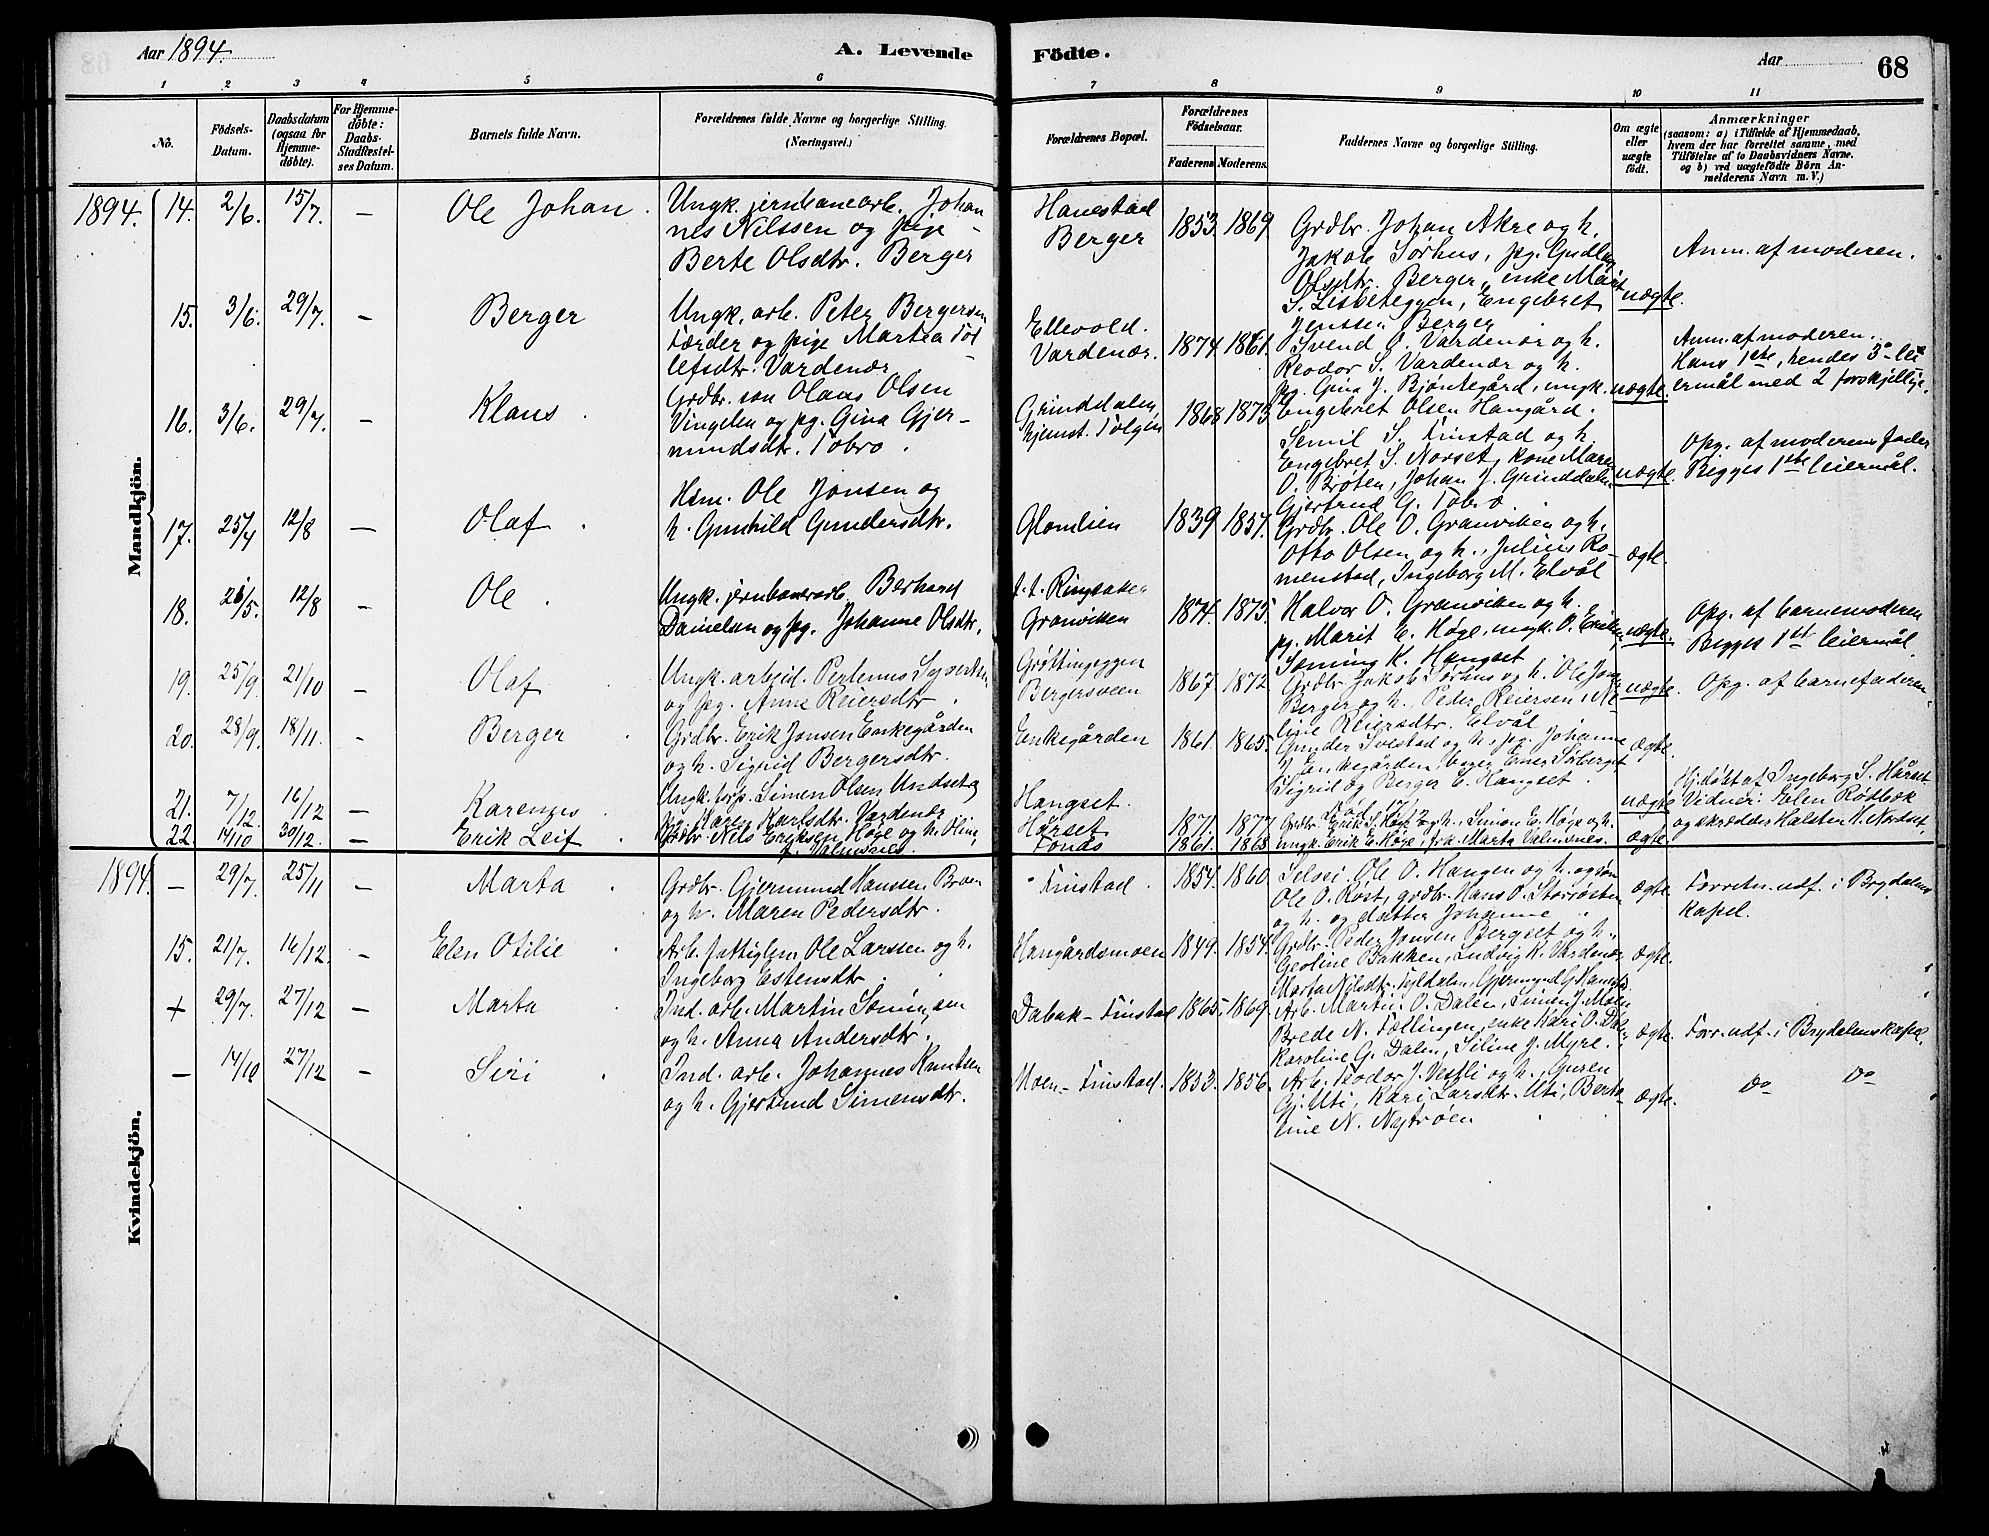 Aar 1894.
A. Levende
1 2 3 4 5 6
No.
Födsels-Datum.
Daabsdatum (ogsaa for Hjemme-döbte).
For Hjemme-döbte: Daabs-Stadfæstel-ses Datum.
Barnets fulde Navn.
Forældrenes fulde Navne og borgerlige Stilling.
(Næringsvei.)
Födte.
Aar
68
7 8 9 10 11
Forældrenes Bopæl.
Forældrenes Födselsaar.
Faderens Moderens.
Faddernes Navne og borgerlige Stilling.
Om ægte eller uægte födt.
Anmærkninger
(saasom: a) i Tilfælde af Hjemmedaab, hvem der har forrettet samme, med Tilföielse af to Daabsvidners Navne, og b) ved uægtefödte Börn An-melderens Navn m. V.)
Mandkjön.
1894. 14. 2/6. 15/7. — Ole Johan.
Ungk. jernbanearb. Johan
nes Nilssen og pige
Berte Olsdtr. Berger
Hanestad
Berger
1853. 1869.
Grdbr. Johan Akre og h.
Jakob Sørhus, pg. Gudlaug
Olsdtr. Berger, enke Marit
S. Lisbeteggen, Engebret
Jenssen Berger
uægte.
Anm. af moderen.
15. 3/6. 29/7. — Berger
Ungk. arb. Peter Bergersen
Færder og pige Martea Tol
lefsdtr. Vardenær
Ellevold.
Vardenær.
1874. 1861.
Svend O. Vardenær og h.
Reodor S. Vardenær og h.
pg. Gina J. Bjøntegård, ungk.
Engebret Olsen Hangård.
uægte.
Anm. af moderen.
Hans 1ste, hendes 3die lei
ermål med 2 forskjellige.
16. 3/6. 29/7. — Klaus.
Grdbr. søn Olaus Olsen
Vingelen og pg. Gina Gjer-
mundsdtr. Tobro.
Grinddalen,
hjemst. Tolgen
1868 1873
Semil S. Finstad og h.
Engebret S. Norset, kone Maren
O. Brøten, Johan J. Grinddalen
Gjertrud G. Tobro.
uægte.
Opg. af moderens fader
Begges 1ste leiermål.
17. 25/4 12/8 — Olaf.
Hsm. Ole Jonsen og
h. Gunhild Gundersdtr.
Glomlien
1839 1857.
Grdbr. Ole O. Granviken og h.
Otto Olsen og h., Julius Ro-
menstad, Ingeborg M. Elvål
ægte.
18. 26/5. 12/8 — Ole.
Ungk. jernbanearb. Berhard
Danielsen og pg. Johanne Olsdtr.
f. t. Ringsaker
Granviken
1874. 1875.
Halvor O. Granviken og h.
pg. Marit E. Høge, ungk. O. Erilien,
Søming K. Hangset
uægte.
Opg. af barnemoderen
Begges 1st leiermål.
19. 25/9. 21/10 — Olaf
Ungk. arbeid. Perlemus Syvertsen
og pg. Anne Reiersdtr.
Grøttingeggen
Bergersveen
1867. 1872.
Grdbr. Jakob Sørhus og h. Ole Jons.
Berger og h., Peder Reiersen,
line Reiersdtr. Elvål
uægte.
Opg. af barnefaderen
20. 28/9. 18/11. — Berger
Grdbr. Erik Jonsen Enkegården
og h. Sigrid Bergersdtr.
Enkegården
1861. 1865.
Gunder Solstad og h., pg. Johanne
J. Enkegården, Søberget,
Sigrid og Berger E. Hangset.
ægte.
21. 7/12. 16/12 — Karenus
Ungk. Simen Olsen Undset og
pg. Karen Karlsdtr. Vardenær
Hangset.
Hårset
1871. 1877
uægte
Hjdøbt af Ingeborg S. Hårset
Vidner: Elen Røtbæk
og skrædder Halsten N. Nordset.
22. 14/10 30/12. — Erik Leif.
Grdbr. Nils Eriksen Høge og h. Oline
f. Valmsnes.
Fonås
1861. 1868
Grdbr. Erik S. Høge og h., Simon E. Høge og h.
ungk. Erik E. Høge, frk. Marta Valmsnes.
ægte
Kvindekjön.
1894. — 29/7. 25/11 — Marta.
Grdbr. Gjermund Hanssen Broen
og h. Maren Pedersdtr.
Finstad.
1854. 1860.
Selvei. Ole O. Haugen og h. og søn
Ole O. Røst, grdbr. Hans O. Storrøsten
og h. og datter Johanne
ægte.
Forretn. udf. i Brydalens
kapel.
15. 21/7. 16/12. — Elen Otilie.
Arb. fattiglem Ole Larssen og h.
Ingeborg Estensdtr.
Hangårdsmoen
1849. 1854.
Grdbr. Peder Jonsen Bergset og h.,
Geoline Bakken, Ludvig K. Vardenær
Marta Nilsdtr. Tyldalen, Gjermund G. Hanestad
ægte.
+ 29/7. 27/12 — Marta.
Ind. arb. Martin Sømingsen
og h. Anna Andersdtr.
Dabak - Finstad
1865. 1869.
Arb. Martin O. Dalen, Simen J. Moen
Brede N. Fællingen, enke Kari O. Dalen
Karoline G. Dalen, Siline J. Myre.
ægte.
Forr. udf. i Brydalenskapel.
— 14/10 27/12 — Siri.
Ind. arb. Johannes Knutsen
og h. Gjertrud Simensdtr.
Moen - Finstad.
1853. 1856.
Arb. Teodor J. Vestli og h., Guren
Gj. Uti, Kari Larsdtr. Uti, Berta-
line N. Nystrøen
ægte.
Do Do